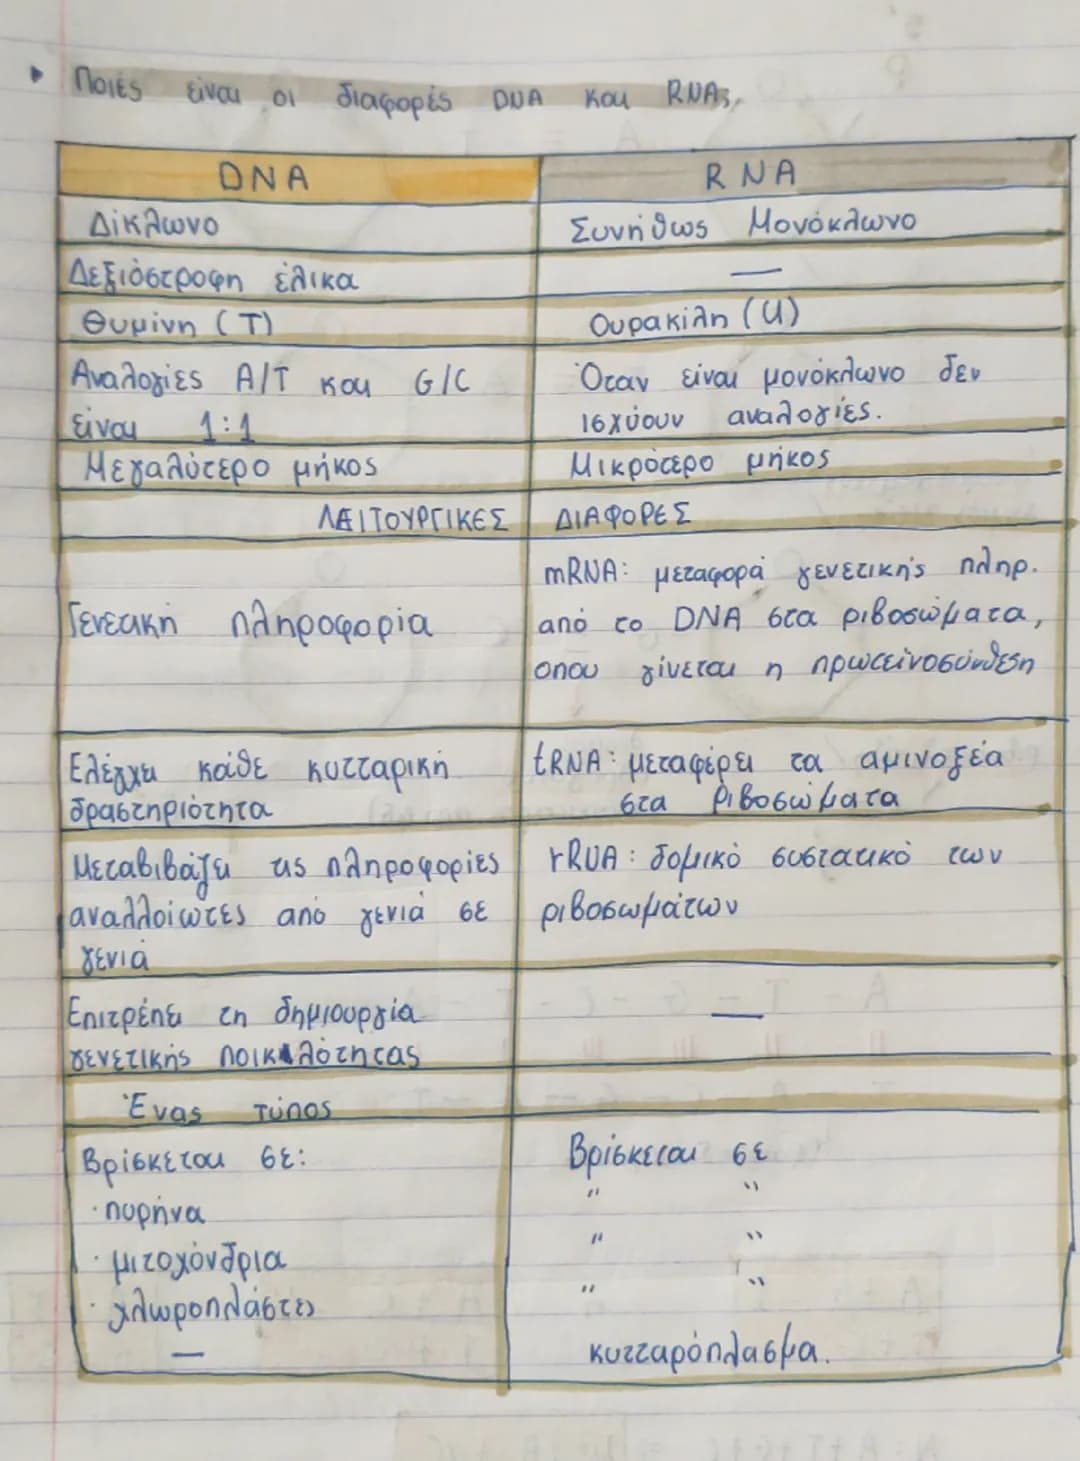 Ποιές είναι οι διαφορές DNA και RNA;
DNA RNA
Δίκλωνο Συνήθως Μονόκλωνο
Δεξιόστροφη έλικα —
Θυμίνη (T) Ουρακίλη (U)
Αναλογίες A/T και G/C Όταν είναι μονόκλωνο δεν
είναι 1:1 ισχύουν αναλογίες.
Μεγαλύτερο μήκος Μικρότερο μήκος
ΛΕΙΤΟΥΡΓΙΚΕΣ ΔΙΑΦΟΡΕΣ
mRNA: μεταφορά γενετικής πληρ.
Γενετική πληροφορία από το DNA στα ριβοσώματα,
οπου γίνεται η πρωτεϊνοσύνθεση
Ελέγχει κάθε κυτταρική tRNA: μεταφέρει τα αμινοξέα
δραστηριότητα στα ριβοσώματα
Μεταβιβάζει τις πληροφορίες rRNA: δομικό συστατικό των
αναλλοίωτες από γενιά σε ριβοσωμάτων
γενιά
Επιτρέπει τη δημιουργία —
γενετικής ποικιλότητας
Ένας τύπος
Βρίσκεται σε: Βρίσκεται σε
· πυρήνα " "
· μιτοχόνδρια " "
· χλωροπλάστες " "
— κυτταρόπλασμα.